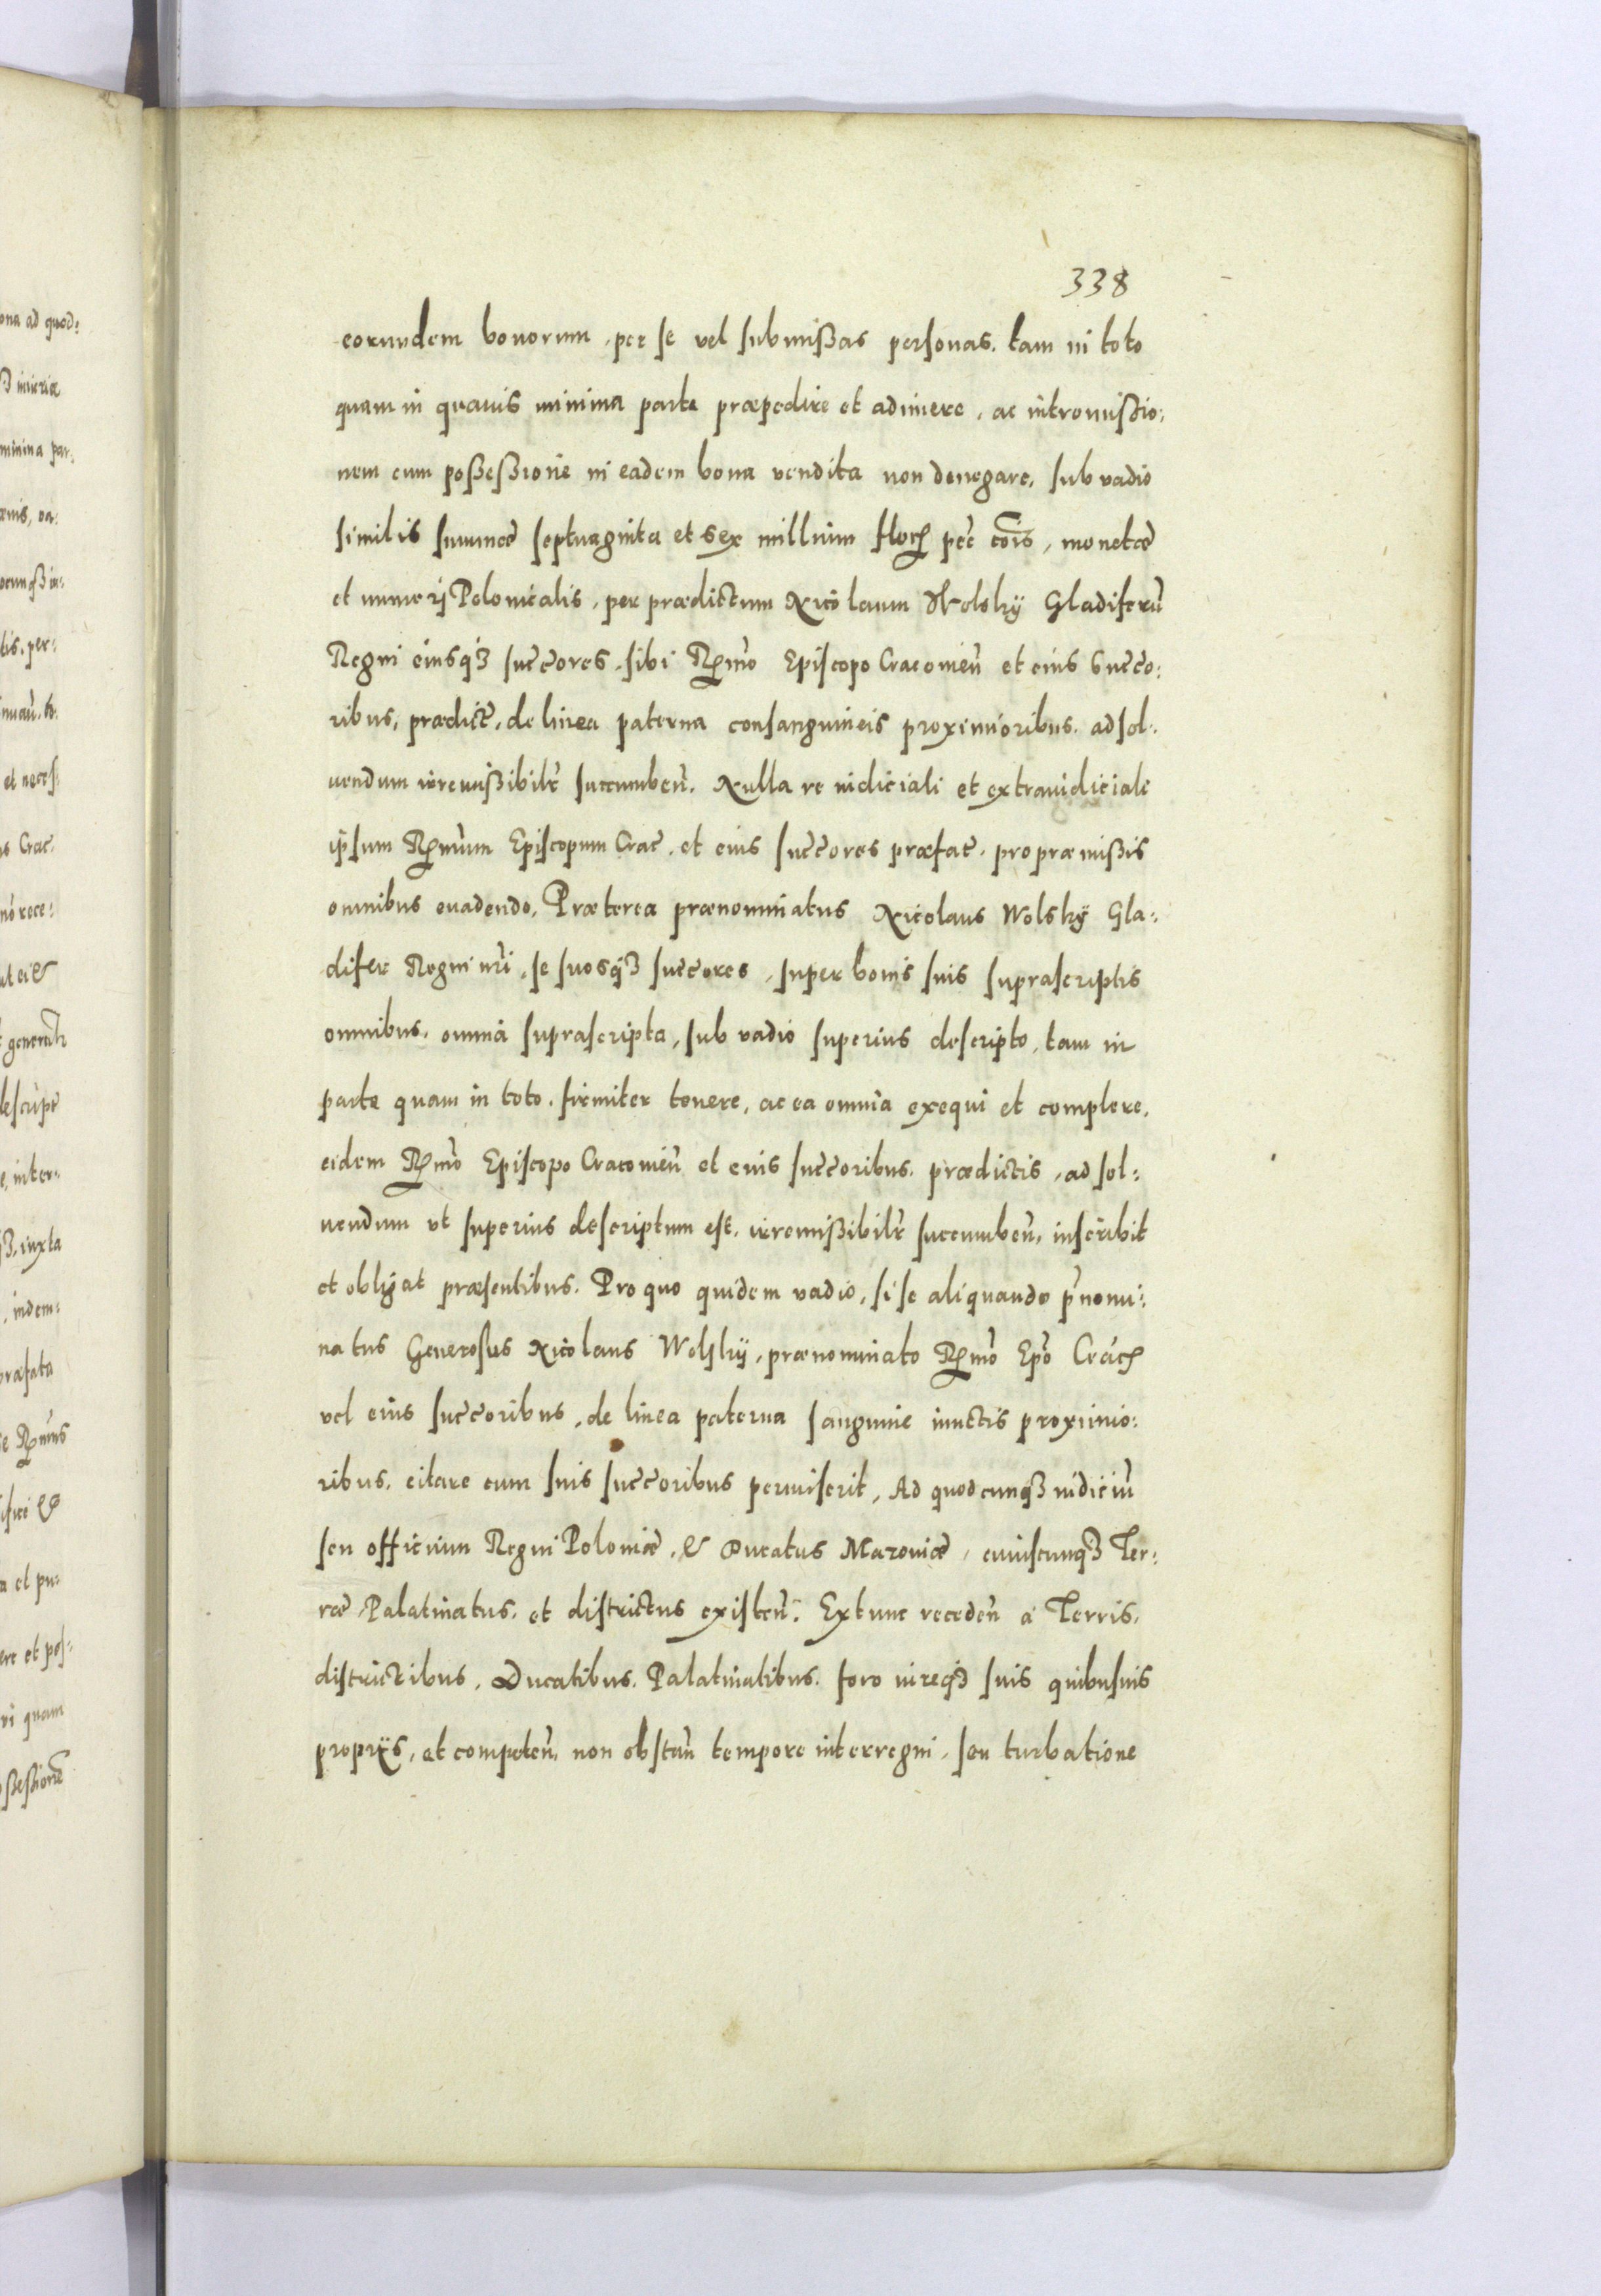 338
eorundem bonorum, per se vel submißas personas, tam in toto
quam in quavis minima parte præpedire et adimere, ac intromißio:
nem cum poßeßione in eadem bona vendita non denegare, sub vadio
similis summæ septuaginta et sex millium floꝝ pec͂ cōis, monetæ
et numeri Polonicalis, per prædictum Nicolaum Wolsky Gladiferū
Regni eiusqȝ succ̄ores, sibi Rꝑmo Episcopo Cracovien̄ et eius Succ̄o:
ribus, prædict̄, de linea paterna consanguineis proximioribus, ad sol:
vendum irremißibilr̄ succumben̄, Nulla re iudiciali et extraiudiciali
ipsum Rꝑmum Episcopum Crac̄, et eius succ̄ores præfat̄, pro præmißis
omnibus evadendo, Præterea prænominatus Nicolaus Wolsky Gla:
difer Regni nr̄i, se suosqȝ succ̄ores, super bonis suis suprascriptis
omnibus, omnia suprascripta, sub vadio superius descripto, tam in
parte quam in toto, firmiter tenere, ac ea omnia exequi et complere,
eidem Rꝑmo Episcopo Cracovien̄ et eius succ̄oribus, prædictis, ad sol:
vendum ut superius descriptum est, irremißibilr̄ succumben̄, inscribit
et obligat præsentibus. Pro quo quidem vadio, si se aliquando p̄nomi:
natus Generosus Nicolaus Wolsky, prænominato Rꝑmo Ep̄o Cracꝝ
vel eius succ̄oribus, de linea paterna sanguine iunctis proximio:
ribus, citare cum suis succ̄oribus permiserit, Ad quodcunqȝ iudiciū
seu officium Regni Poloniæ, & Ducatus Mazoviæ, cuiuscunqȝ Ter:
ræ, Palatinatus, et districtus existen̄. Extunc receden̄ a Terris,
districtibus, Ducatibus, Palatinatibus, foro iureqȝ suis quibusvis
proprijs, et competen̄, non obstan̄ tempore interregni, seu turbatione